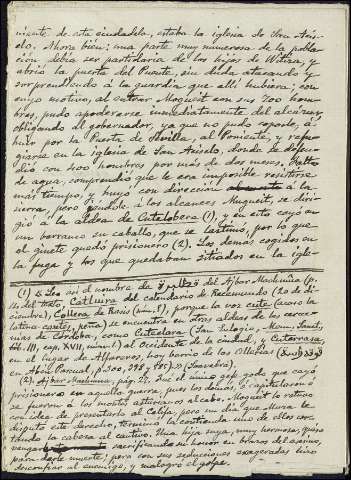 niente de esta ciudadela, estaba la iglesia de San Acis-
clo. Ahora bien: una parte muy numerosa de la pobla-
ción debía ser partidaria de los hijos de Witiza, y
abrió la puerta del Puente, sin duda atacando y
sorprendiendo á la guardia que allí hubiera; con
cuyo motivo, al entrar Mogueit con sus 700 hom-
bres, pudo apoderarse inmediatamente del alcázar,
obligando al gobernador, ya que no pudo
huir por la Puerta de Sevilla, al Poniente, y refu-
giarse en la iglesia de San Acisclo, donde se defen-
dió con 400 hombres por más de dos meses. Falto
de agua, comprendió que le era imposible resistirse
más tiempo, y huyó con dirección á la
sierra; pero yéndole á los alcances Mugueit, se diri-
gió á la aldea de Catalobera (1), y en esto cayó en
un barranco su caballo, que se lastimó, por lo que
el ginete quedó prisionero (2). Los demás cogidos en
la fuga y los que quedaban sitiados en la igle-
(1) Lee así el nombre de del Ajbar Machmúa (p.
del texto, Catluira del calendario de Recemundo (20 de di-
ciembre), Collera de Rasis (núm. ), porque la voz cute (acaso la
latina cautes, peña) se encuentra en otras aldeas de las cerca-
nías de Córdoba, como Cuteclara (San Eulogio, Mem. Sanct.,
lib. , cap. XVII, núm. ) al Occidente de la ciudad, y Cuterrasa,
en el lugar de Alfarores, hoy barrio de las Ollerías
en Abén Pascual, p. 300, 398 y ) (Saavedra).
(2) Ajbar Machmúa, pág. 27. Fué el único jefe godo que cayó
prisionero en aquella guerra, pues los demás ó capitularon ó
se fueron á los montes asturianos al cabo. Mogueit lo retuvo
con idea de presentarlo al Califa, pero un día que Muza le
disputó este derecho, terminó la contienda uno de ellos cor-
tando la cabeza al cautivo. Una hija suya, muy hermosa, quiso
vengarle sacrificando su honor en brazos del asesino,
para darle muerte; pero con sus seducciones exageradas hizo
desconfiar al enemigo, y malogró el golpe.